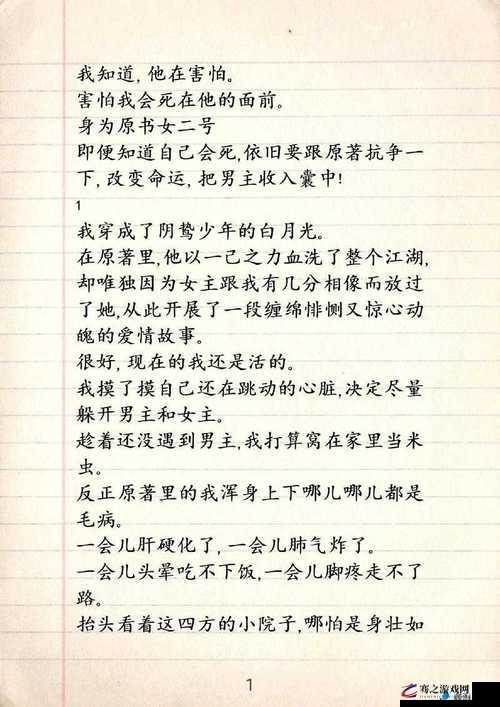 我知道,他在害怕。
害怕我会死在他的面前。
身为原书女二号
即便知道自己会死,依旧要跟原著抗争一
下,改变命运,把男主收入囊中!
1
我穿成了阴鸷少年的白月光。
在原著里,他以一己之力血洗了整个江湖,
却唯独因为女主跟我有几分相像而放过
了她,从此开展了一段缠绵悱恻又惊心动
魄的爱情故事。
很好,现在的我还是活的。
我摸了摸自己还在跳动的心脏,决定尽量
躲开男主和女主。
趁着还没遇到男主,我打算窝在家里当米
虫。
反正原著里的我浑身上下哪儿哪儿都是
毛病。
一会儿肝硬化了,一会儿肺气炸了。
一会儿头晕吃不下饭,一会儿脚疼走不了
路。
抬头看着这四方的小院子,哪怕是身壮如
1
骞之游戏网